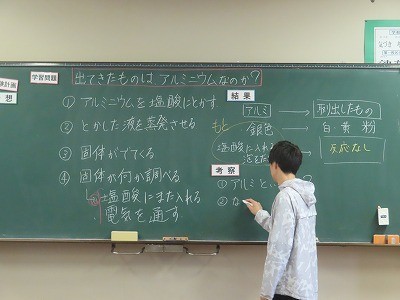 学習問題
出てきたものは アルミニウムなのか?
計画
想
① アルミニウムを塩酸にとかす
② とかした液を蒸発させる
③ 固体がでてくる
④ 固体が何か調べる
塩酸にまた入れる
電気を通す
結果
アルミ
析出したもの
もと
銀色
白 黄 粉
塩酸に入れる
泡をだ
反応なし
考察
① アルミとい
?
② な
気づき